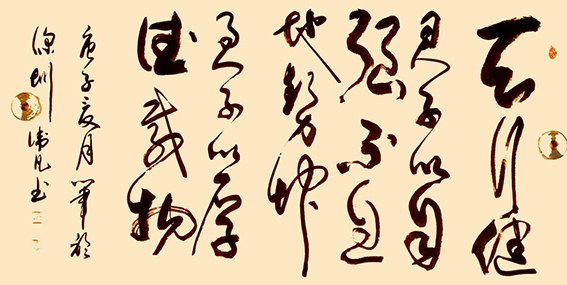 天行健
君子以自
强不息
地势坤
君子以厚
德载物
庚子夏月筆於
深圳